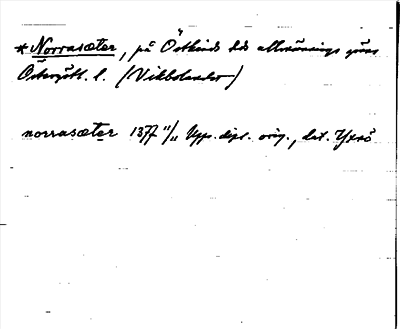 * Norrasæter, på Östkinds hds allmännings
Östergötl. l. (Vikbolandet)
norrasæter 1377 11/11 Upps. dipl. orig., dat. Yxnö